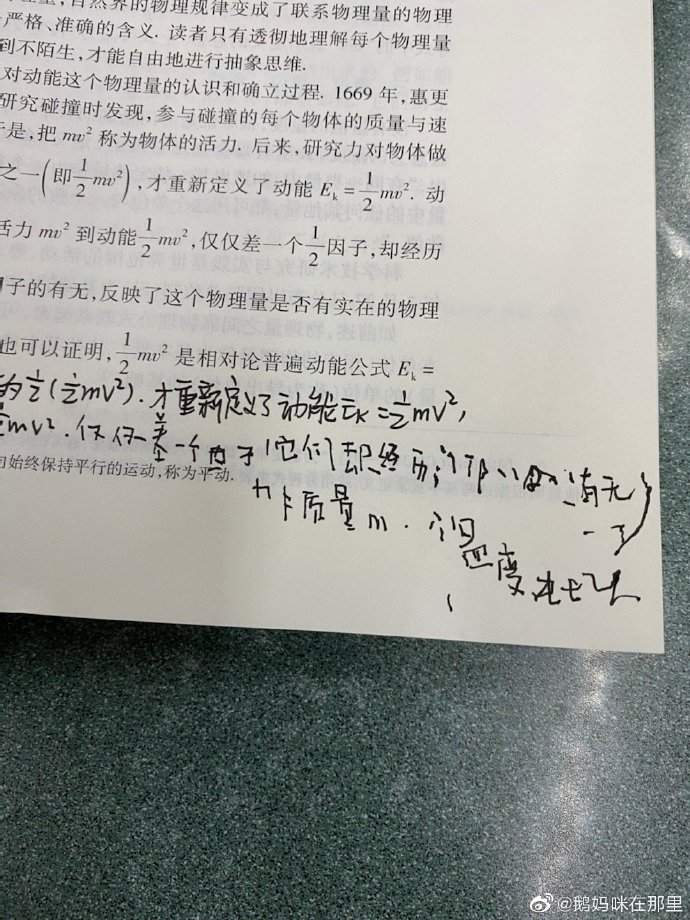 自然界的物理规律变成了联系物理量的物理
严格、准确的含义. 读者只有透彻地理解每个物理量
到不陌生，才能自由地进行抽象思维.
对动能这个物理量的认识和确立过程. 1669 年，惠更
研究碰撞时发现，参与碰撞的每个物体的质量与速
是，把 mv² 称为物体的活力. 后来，研究力对物体做
之一(即1/2mv²)，才重新定义了动能 Eₖ=1/2mv². 动
活力 mv² 到动能1/2mv²，仅仅差一个1/2因子，却经历
子的有无，反映了这个物理量是否有实在的物理
也可以证明，1/2mv² 是相对论普遍动能公式 Eₖ=
的1/2(1/2mv²). 才重新定义了动能Eₖ=1/2mv²,
mv². 仅仅差一个因子 它们却经历 有无
始终保持平行的运动，称为平动.
质量m.
速度
@鹅妈咪在那里